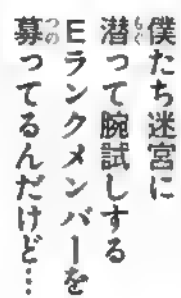 僕たち迷宮に
潜って腕試しする
Eランクメンバーを
募ってるんだけど…